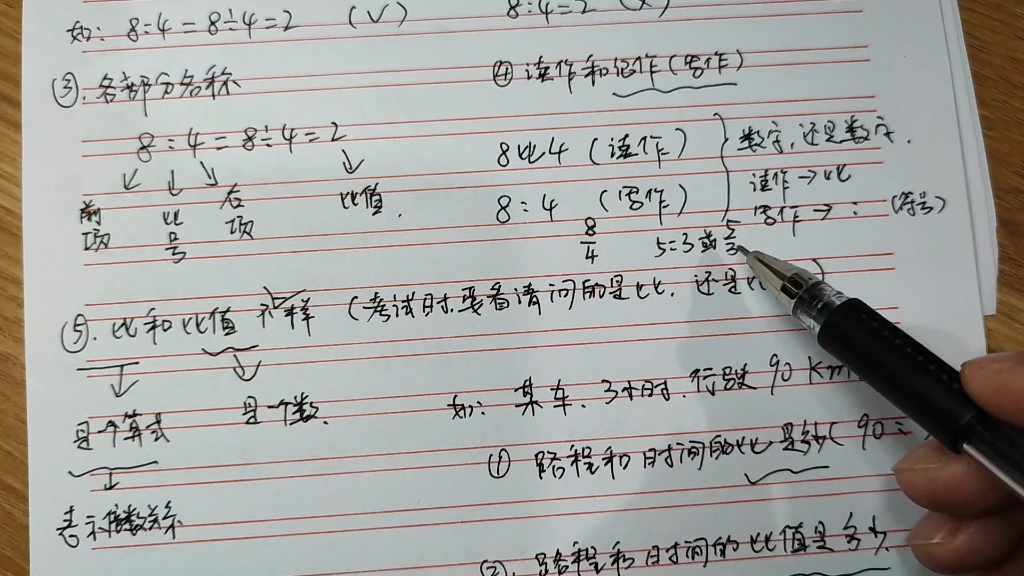 如: 8:4=8÷4=2 (√) 8:4=2 (×)
③. 各部分名称
8:4=8÷4=2
前项 比号 后项 比值.
④ 读作和记作(写作)
8比4 (读作)
8:4 (写作)
8/4
5:3或5/3
数字,还是数字.
读作→比
写作→: (符号)
⑤. 比和比值不一样 (考试时.要看清问的是比.还是比)
是一个算式
是一个数.
表示倍数关系
如: 某车. 3小时.行驶90Km
① 路程和时间的比是多少( 90:
②. 路程和时间的比值是多少